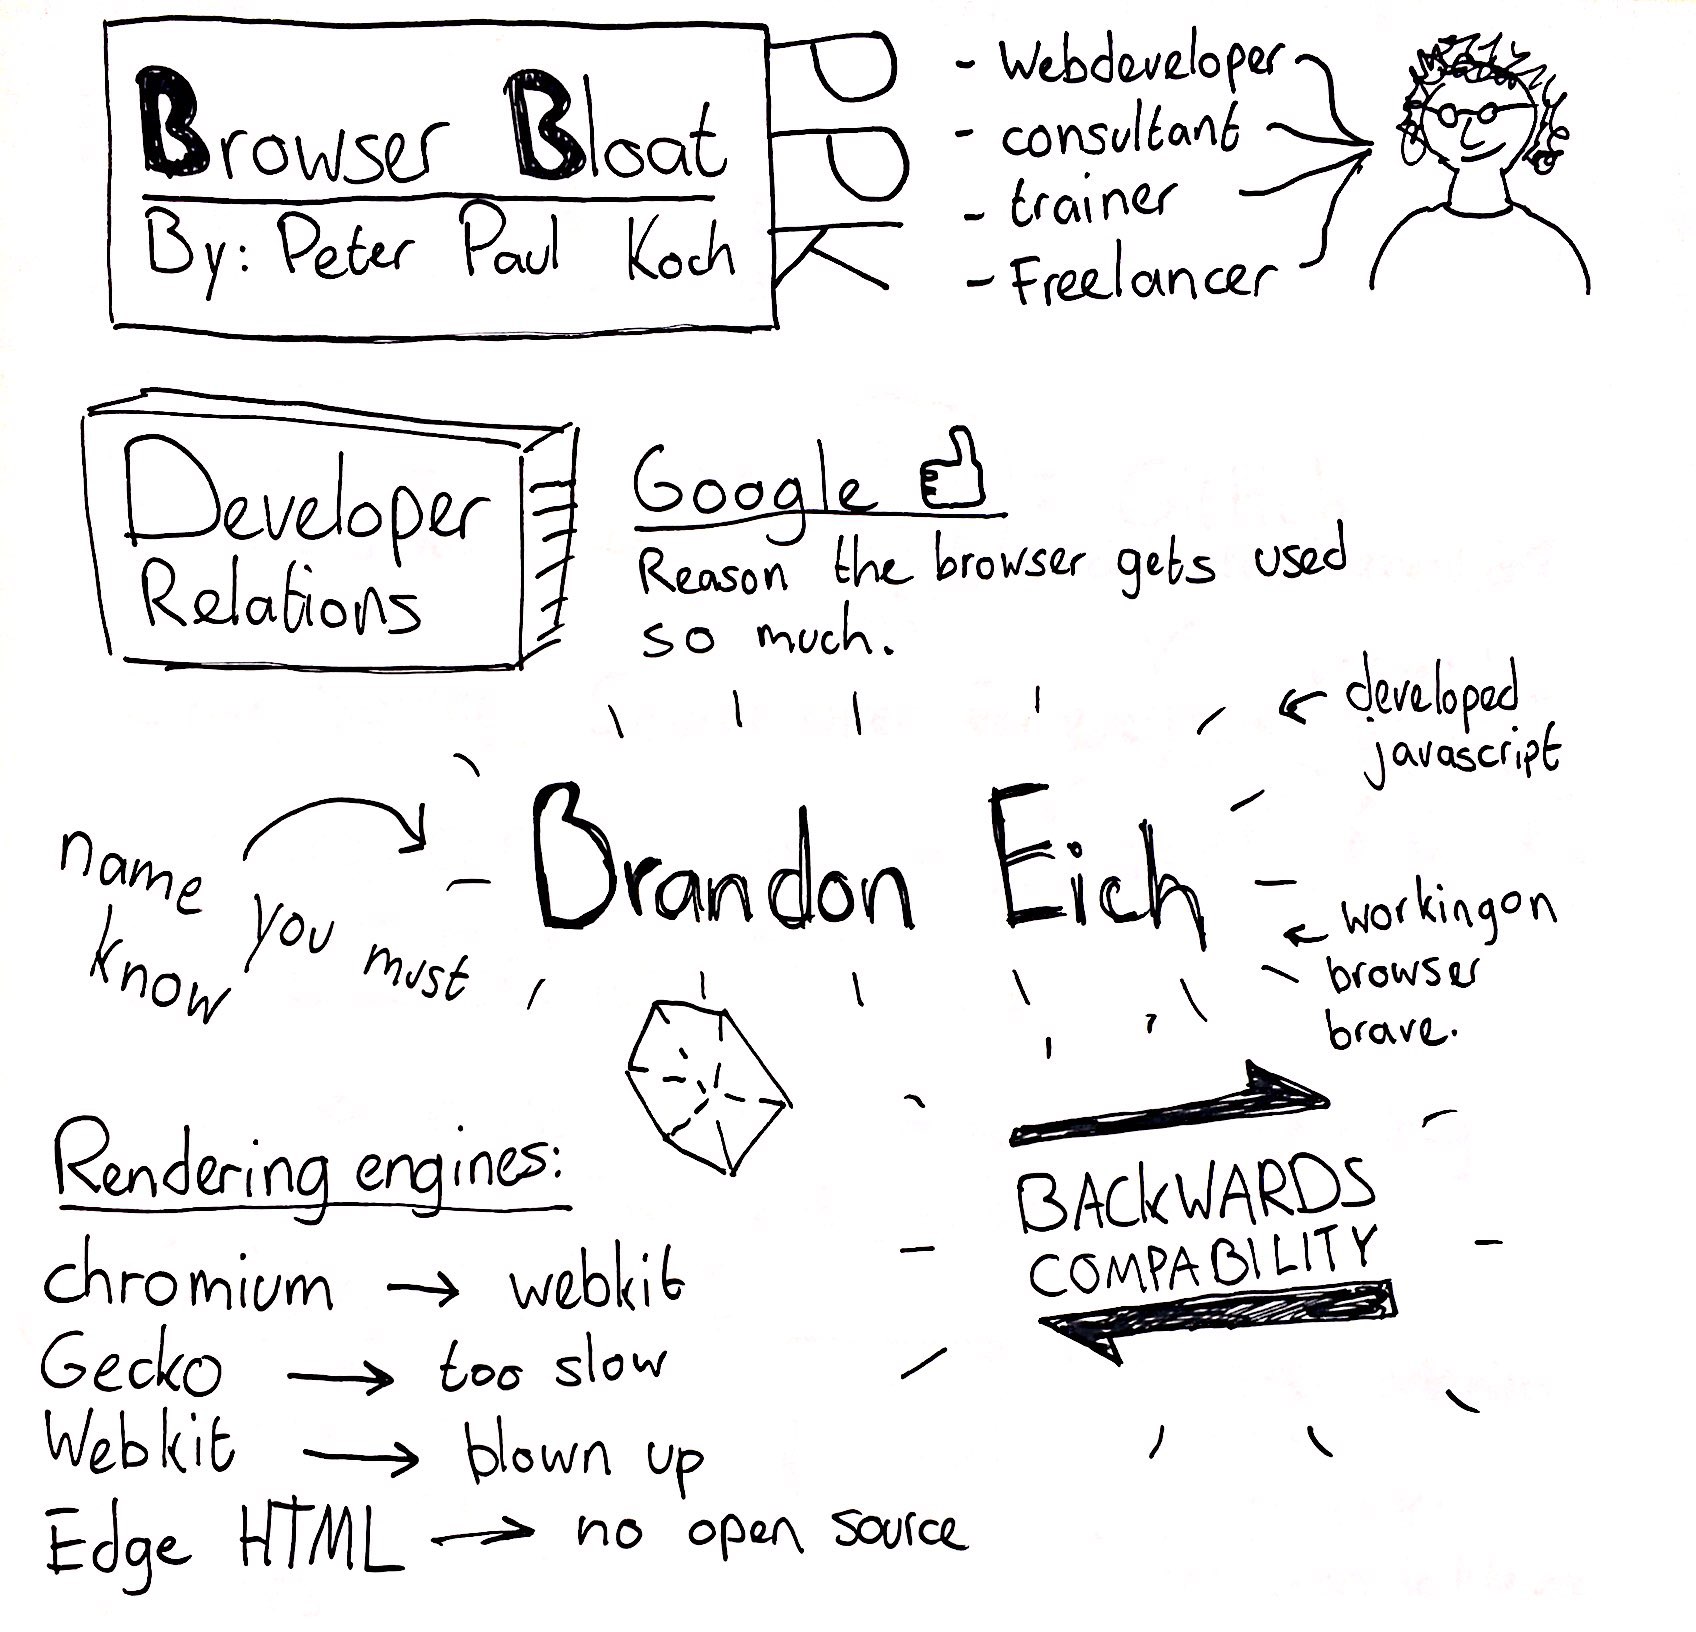 Browser Bloat
By: Peter Paul Koch
PPK
- Webdeveloper
- consultant
- trainer
- Freelancer
Developer
Relations
Google
Reason the browser gets used
so much.
name
know you must
Brandon Eich
developed
javascript
working on
browser
brave.
Rendering engines:
chromium → webkit
Gecko → too slow
Webkit → blown up
Edge HTML → no open source
BACKWARDS
COMPABILITY